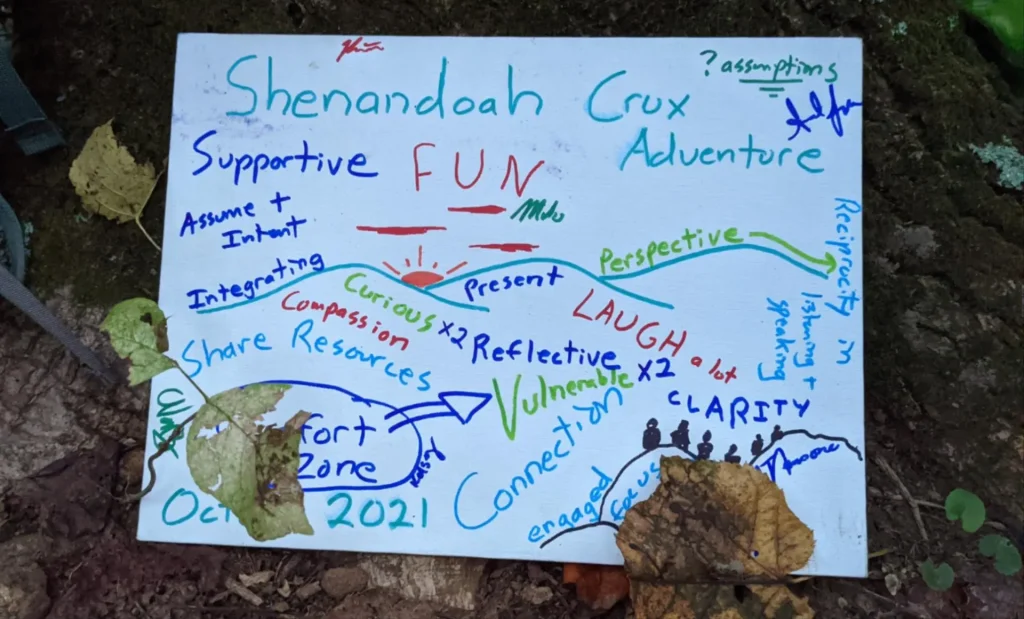 ? assumptions
Shenandoah Crux
Adventure
Supportive
FUN
Assume +
Intent
Milo
Integrating
Curious x2
Compassion
Present
Perspective
Reciprocity in
listening +
speaking
LAUGH
a lot
Share Resources
Reflective x2
Vulnerable
fort
Zone
Connection
CLARITY
engaged
focus
Oct 2021